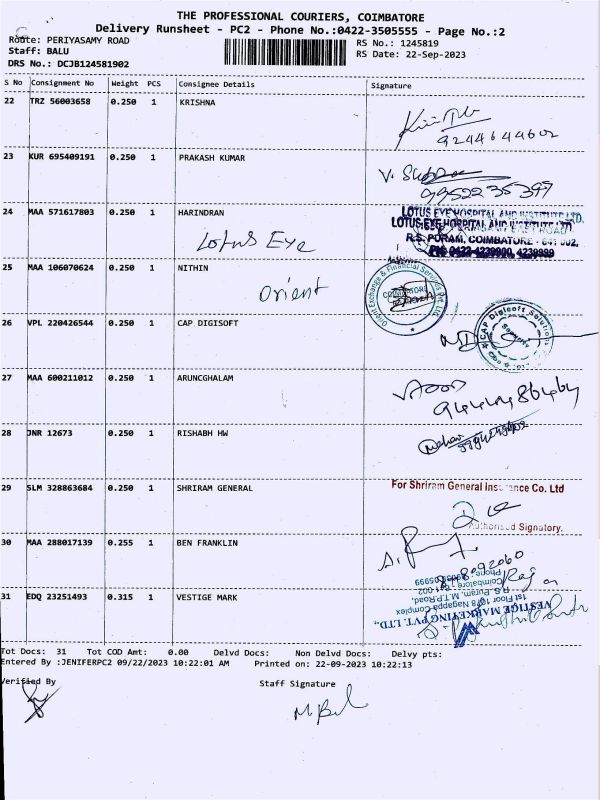 THE PROFESSIONAL COURIERS, COIMBATORE
Delivery Runsheet - PC2 - Phone No.:0422-3505555 - Page No.:2
Route: PERIYASAMY ROAD
RS No.: 1245819
Staff: BALU
RS Date: 22-Sep-2023
DRS No.: DCJB124581902
S No Consignment No Weight PCS Consignee Details Signature
22 TRZ 56003658 0.250 1 KRISHNA
9244644602
23 KUR 695409191 0.250 1 PRAKASH KUMAR
9952235397
24 MAA 571617803 0.250 1 HARINDRAN
Lotus Eye
LOTUS EYE HOSPITAL AND INSTITUTE LTD.
R.S. PURAM, COIMBATORE - 641 002.
PH: 0422-4239900, 4239999
25 MAA 106070624 0.250 1 NITHIN
Orient
Orient Exchange & Financial Services Pvt. Ltd.
COIMBATORE
26 VPL 220426544 0.250 1 CAP DIGISOFT
CAP Digisoft Solutions
Security
27 MAA 600211012 0.250 1 ARUNCGHALAM
28 JNR 12673 0.250 1 RISHABH HW
29 SLM 328863684 0.250 1 SHRIRAM GENERAL
For Shriram General Insurance Co. Ltd
Authorised Signatory.
30 MAA 288017139 0.255 1 BEN FRANKLIN
31 EDQ 23251493 0.315 1 VESTIGE MARK
VESTIGE MARKETING PVT. LTD.,
1st Floor 1078 Nagappa Complex
R.S. Puram, M.T.P.Road,
Tot Docs: 31 Tot COD Amt: 0.00 Delvd Docs: Non Delvd Docs: Delvy pts:
Entered By :JENIFERPC2 09/22/2023 10:22:01 AM Printed on: 22-09-2023 10:22:13
Verified By
Staff Signature